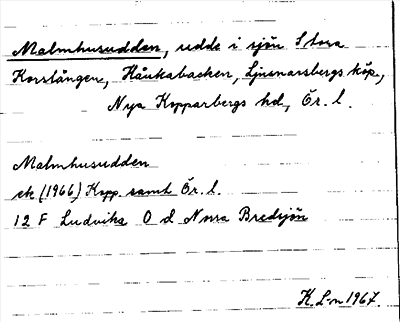 Malmhusudden, udde i sjön Stora
Korslången, Håukabacken, Ljusnarsbergs köp.,
Nya Kopparbergs hd, Ör. l.
Malmhusudden
ek (1966) Kopp. samt Ör. l.
12 F Ludvika O d Norra Bredsjön
K. L-n 1967.